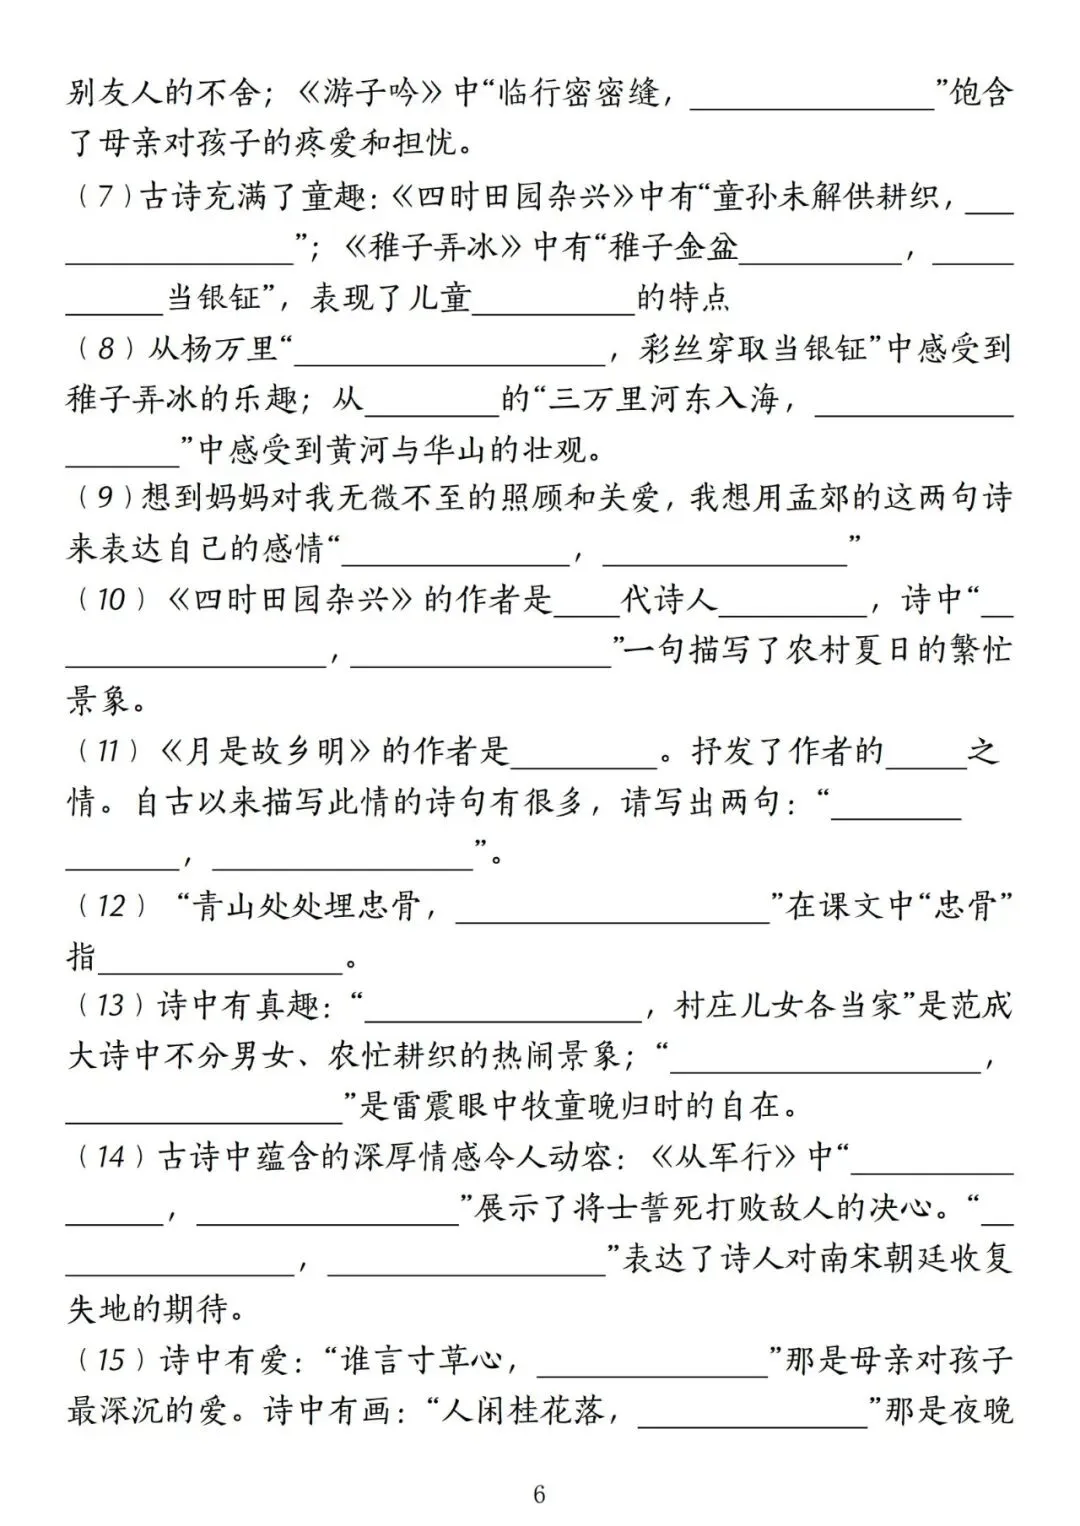 别友人的不舍；《游子吟》中“临行密密缝，_______________”饱含
了母亲对孩子的疼爱和担忧。
（7）古诗充满了童趣：《四时田园杂兴》中有“童孙未解供耕织，___
______________”；《稚子弄冰》中有“稚子金盆__________，_____
______当银钲”，表现了儿童__________的特点
（8）从杨万里“___________________，彩丝穿取当银钲”中感受到
稚子弄冰的乐趣；从________的“三万里河东入海，____________
_______”中感受到黄河与华山的壮观。
（9）想到妈妈对我无微不至的照顾和关爱，我想用孟郊的这两句诗
来表达自己的感情“______________，_______________”
（10）《四时田园杂兴》的作者是____代诗人_________，诗中“__
________________，________________”一句描写了农村夏日的繁忙
景象。
（11）《月是故乡明》的作者是_________。抒发了作者的_____之
情。自古以来描写此情的诗句有很多，请写出两句：“________
_______，________________”。
（12）“青山处处埋忠骨，___________________”在课文中“忠骨”
指_______________。
（13）诗中有真趣：“_________________，村庄儿女各当家”是范成
大诗中不分男女、农忙耕织的热闹景象；“___________________，
_________________”是雷震眼中牧童晚归时的自在。
（14）古诗中蕴含的深厚情感令人动容：《从军行》中“__________
______，________________”展示了将士誓死打败敌人的决心。“__
______________，_________________”表达了诗人对南宋朝廷收复
失地的期待。
（15）诗中有爱：“谁言寸草心，______________”那是母亲对孩子
最深沉的爱。诗中有画：“人闲桂花落，______________”那是夜晚
6